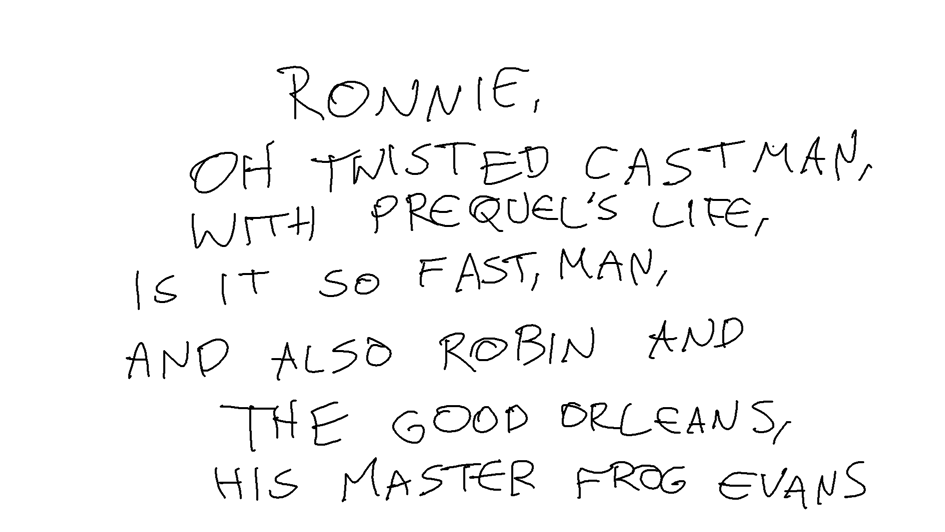 RONNIE,
OH TWISTED CASTMAN,
WITH PREQUEL'S LIFE,
IS IT SO FAST, MAN,
AND ALSO ROBIN AND
THE GOOD ORLEANS,
HIS MASTER FROG EVANS